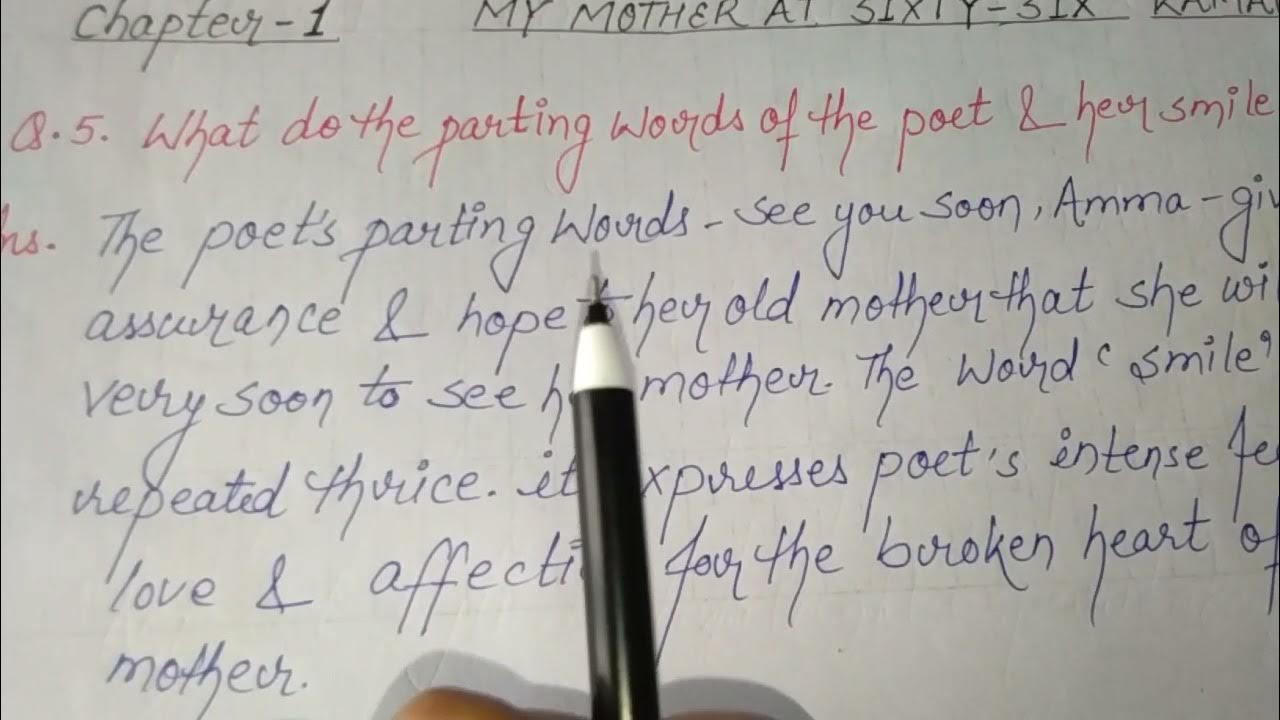 Chapter-1 MY MOTHER AT SIXTY-SIX
Q.5. What do the parting words of the poet & her smile
The poet's parting words - see you soon, Amma -
assurance & hope to her old mother that she
very soon to see mother. The word 'smile'
repeated thrice. it expresses poet's intense
love & for the broken heart of
mother.